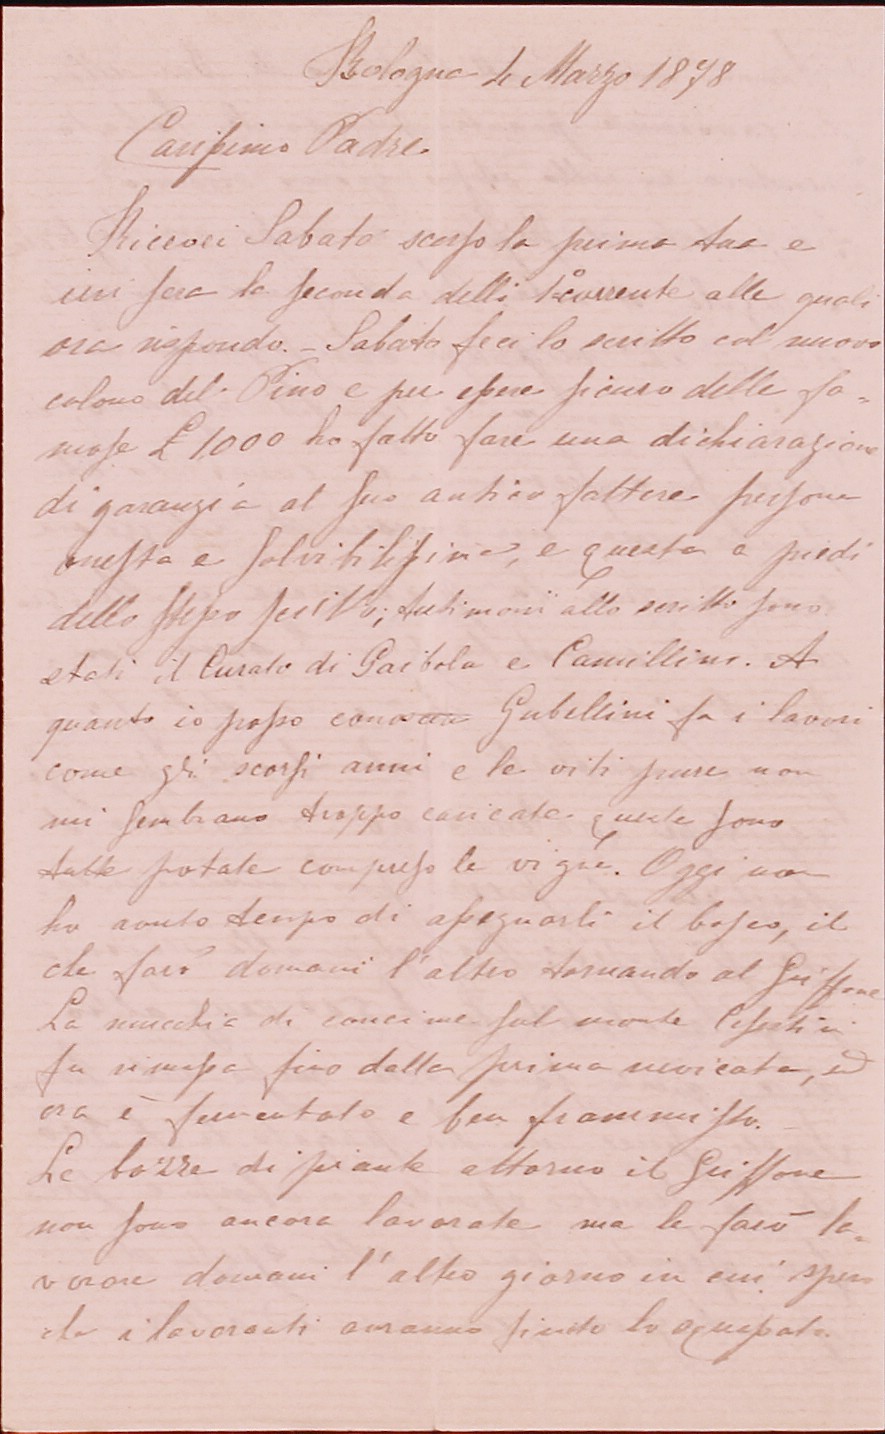 Bologna 4 Marzo 1878
Carissimo Padre
Ricevei Sabato scorso la prima tua e
ieri sera la seconda delli 1° corrente alle quali
ora rispondo. – Sabato feci lo scritto col nuovo
colono del Pino e per essere sicuro delle fa=
mose £ 1000 ho fatto fare una dichiarazione
di garanzia al suo antico fattore persona
onesta e solvibilissima, e questa a piedi
dello stesso scritto; testimonii allo scritto sono
stati il Curato di Gaibola e Camillino. A
quanto io posso conoscere Gubellini fa i lavori
come gli scorsi anni e le viti pure non
mi sembrano troppo caricate queste sono
tutte potate compreso le vigne. Oggi non
ho avuto tempo di assegnarli il bosco, il
che farò domani l'altro tornando al Griffone
La mucchia di concime sul monte
fu rimessa fino dalla prima nevicata, ed
ora è fermentato e ben frammisto. –
Le bozze di piante attorno il Griffone
non sono ancora lavorate ma le farò la=
vorare domani l'altro giorno in cui spero
che i lavoranti avranno finito lo